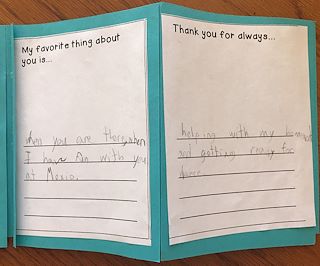 My favorite thing about
you is...
when you are there, when
I have fun with you
at
Thank you for always...
helping with my
and getting ready for